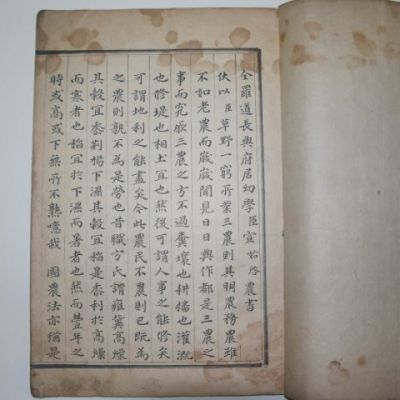 全羅道長興府居幼學臣宣始啓農書
伏以臣草野一窮所業三農則其明農務農雖
不如老農而歲歲聞見日日興作都是三農之
事而究厥三農之方不過糞壤也耕播也灌漑
也修堤也相土宜也然後可謂人事之能修矣
可謂地利之能盡矣今此農民不農則已既為
之農則孰不為是勞也昔職方氏謂雍冀高燥
其穀宜黍荊楊下濕其穀宜稻是黍利於高燥
而寒者也稻宜於下濕而暑者也然而豊年之
時或高或下無所不熟噫我 國農法亦猶是